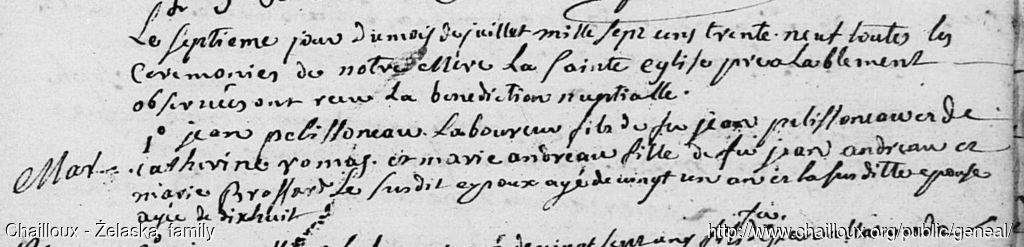 Le septieme jour du mois de juillet mille sept cens trente neuf toutes les
Ceremonies de notre Mere La sainte eglise prealablement
observées ont receu La benediction nuptialle.
1° jean pelissoneau Laboureur fils de fu jean pelissoneau et de
Mar catherine et marie andreau fille de fu jean andreau et
marie Brossard Le susdit epoux agé de vingt un an et la susditte epouse
agée de dixhuit
Chailloux - Żelaska family
http://www.chailloux.org/public/geneal/